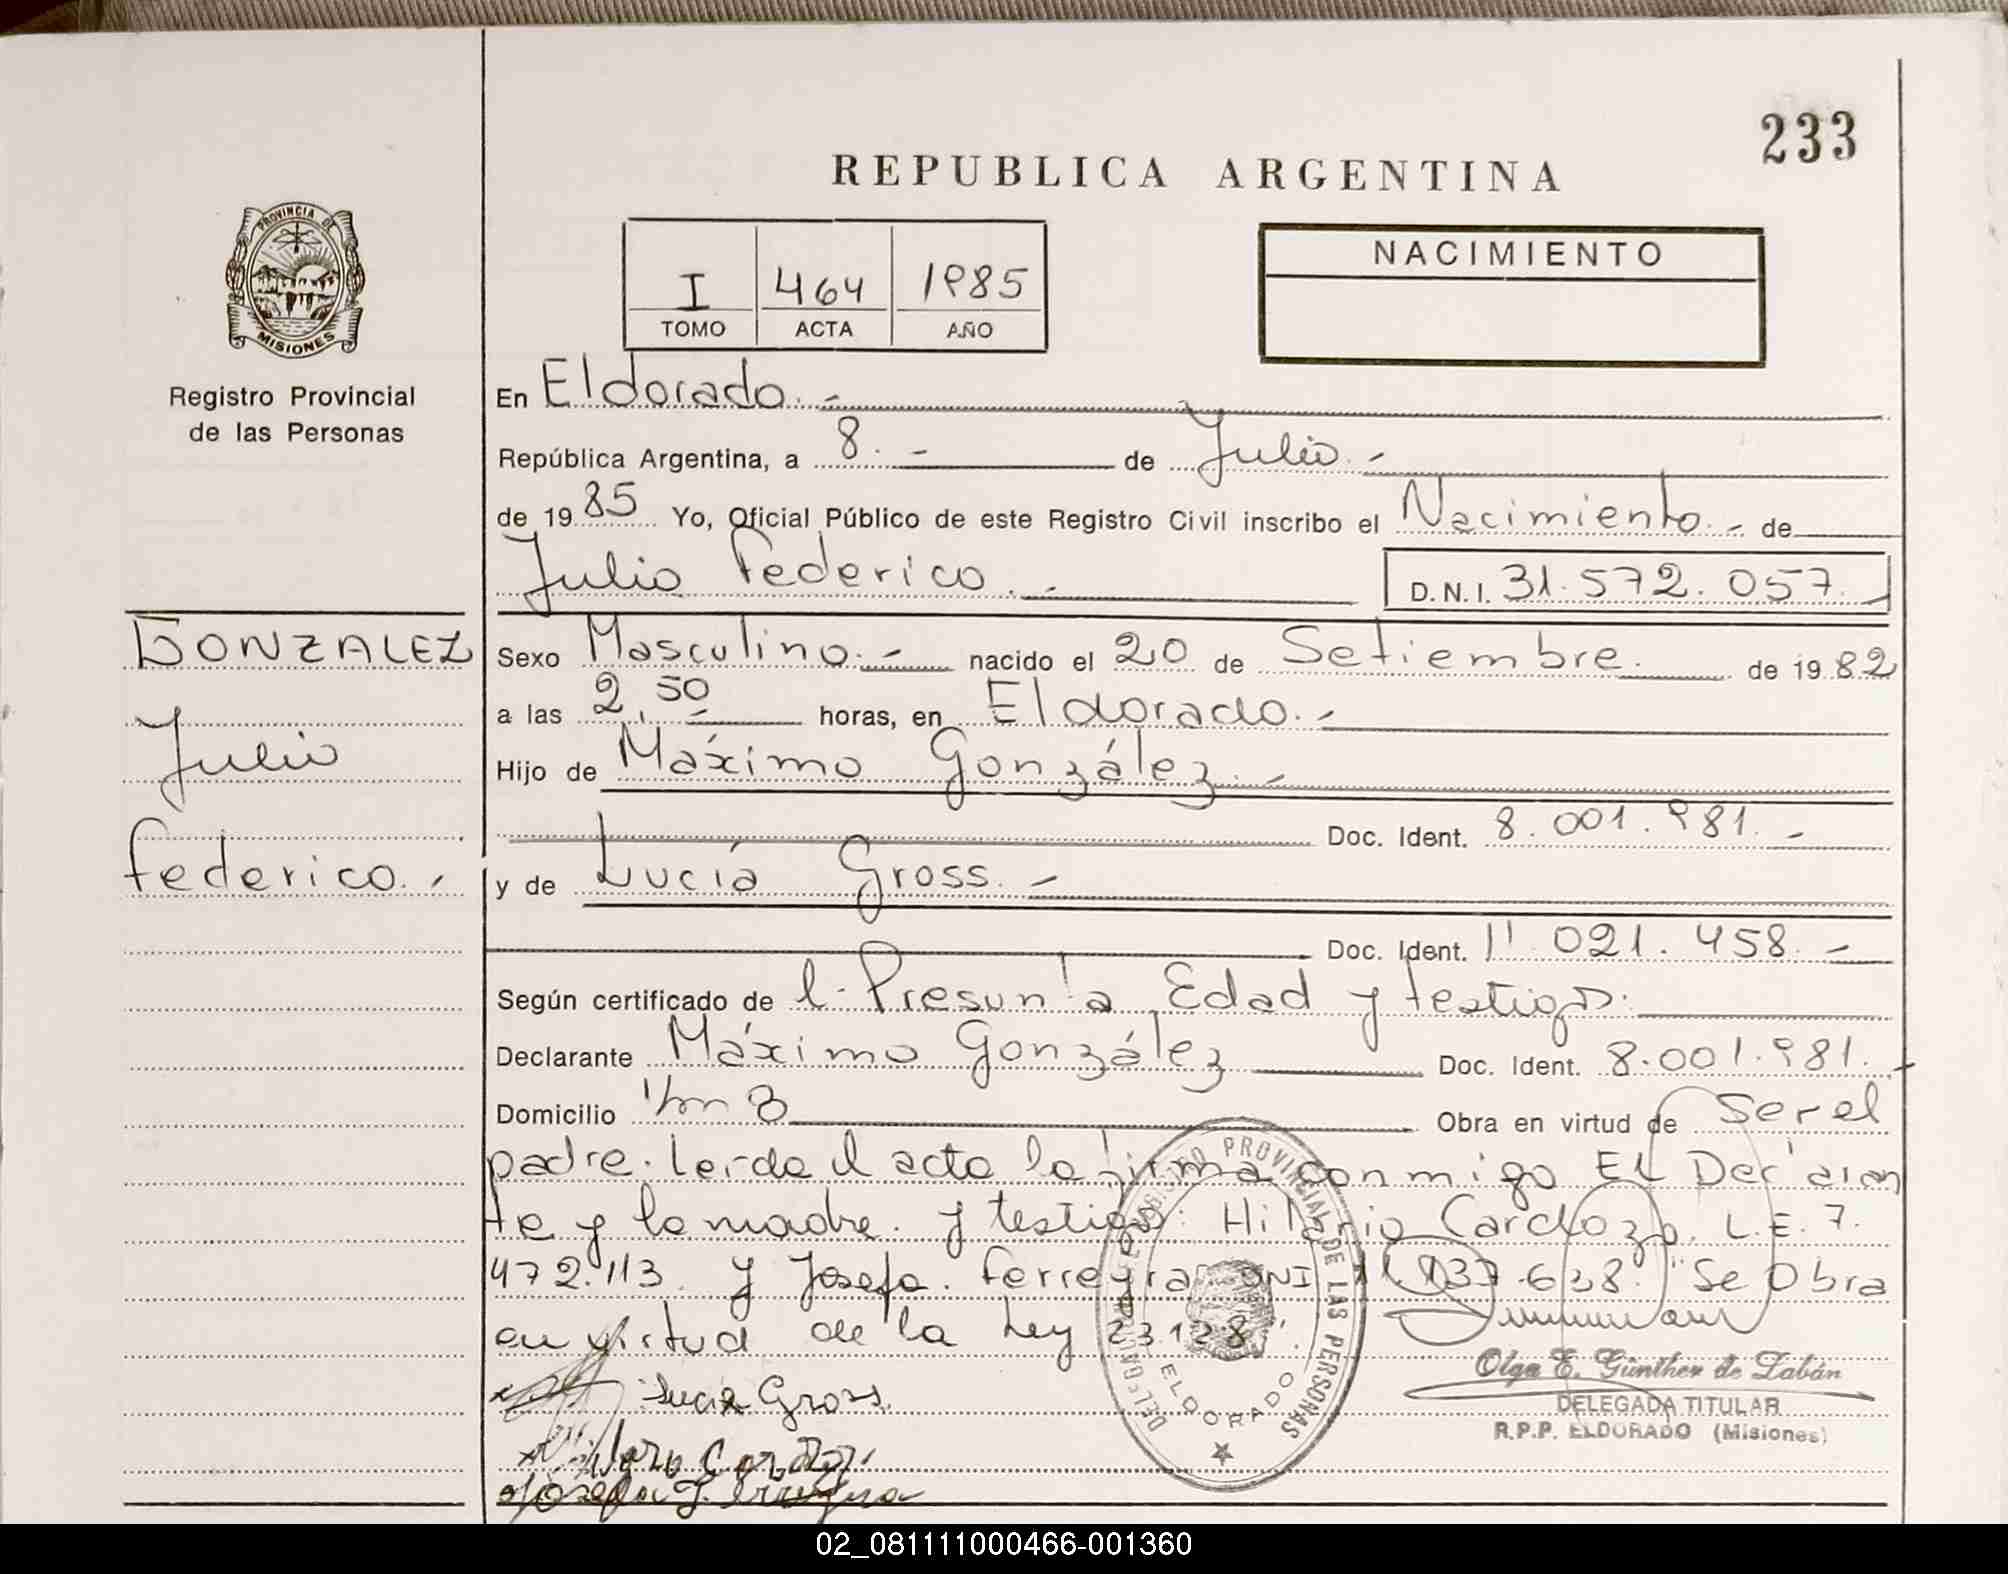 233
REPUBLICA ARGENTINA
PROVINCIA DE
MISIONES
Registro Provincial
de las Personas
I 464 1985
TOMO ACTA AÑO
NACIMIENTO
En Eldorado.-
República Argentina, a 8.- de Julio.-
de 1985 Yo, Oficial Público de este Registro Civil inscribo el Nacimiento.- de
Julio Federico.- D.N.I. 31.572.057.
GONZALEZ
Julio
Federico.-
Sexo Masculino.- nacido el 20 de Setiembre. de 1982
a las 2,50 horas, en Eldorado.-
Hijo de Máximo González.-
Doc. Ident. 8.001.981.-
y de Lucía Gross.-
Doc. Ident. 11.021.458.-
Según certificado de l. Presunta Edad y testigos.
Declarante Máximo González Doc. Ident. 8.001.981.-
Domicilio Km 8 Obra en virtud de Ser el
padre. Leída el acta la firma conmigo El Declaran
te y la madre. y testigos: Hilario Cardozo, L.E. 7.
472.113 y Josefa. Ferreyra DNI 11.037.638. "Se Obra
en virtud de la Ley 23.128".
Lucia Gross.
DELEGACION REGISTRO PROVINCIAL DE LAS PERSONAS
ELDORADO
Olga E. Günther de Zabán
DELEGADA TITULAR
R.P.P. ELDORADO (Misiones)
02_081111000466-001360